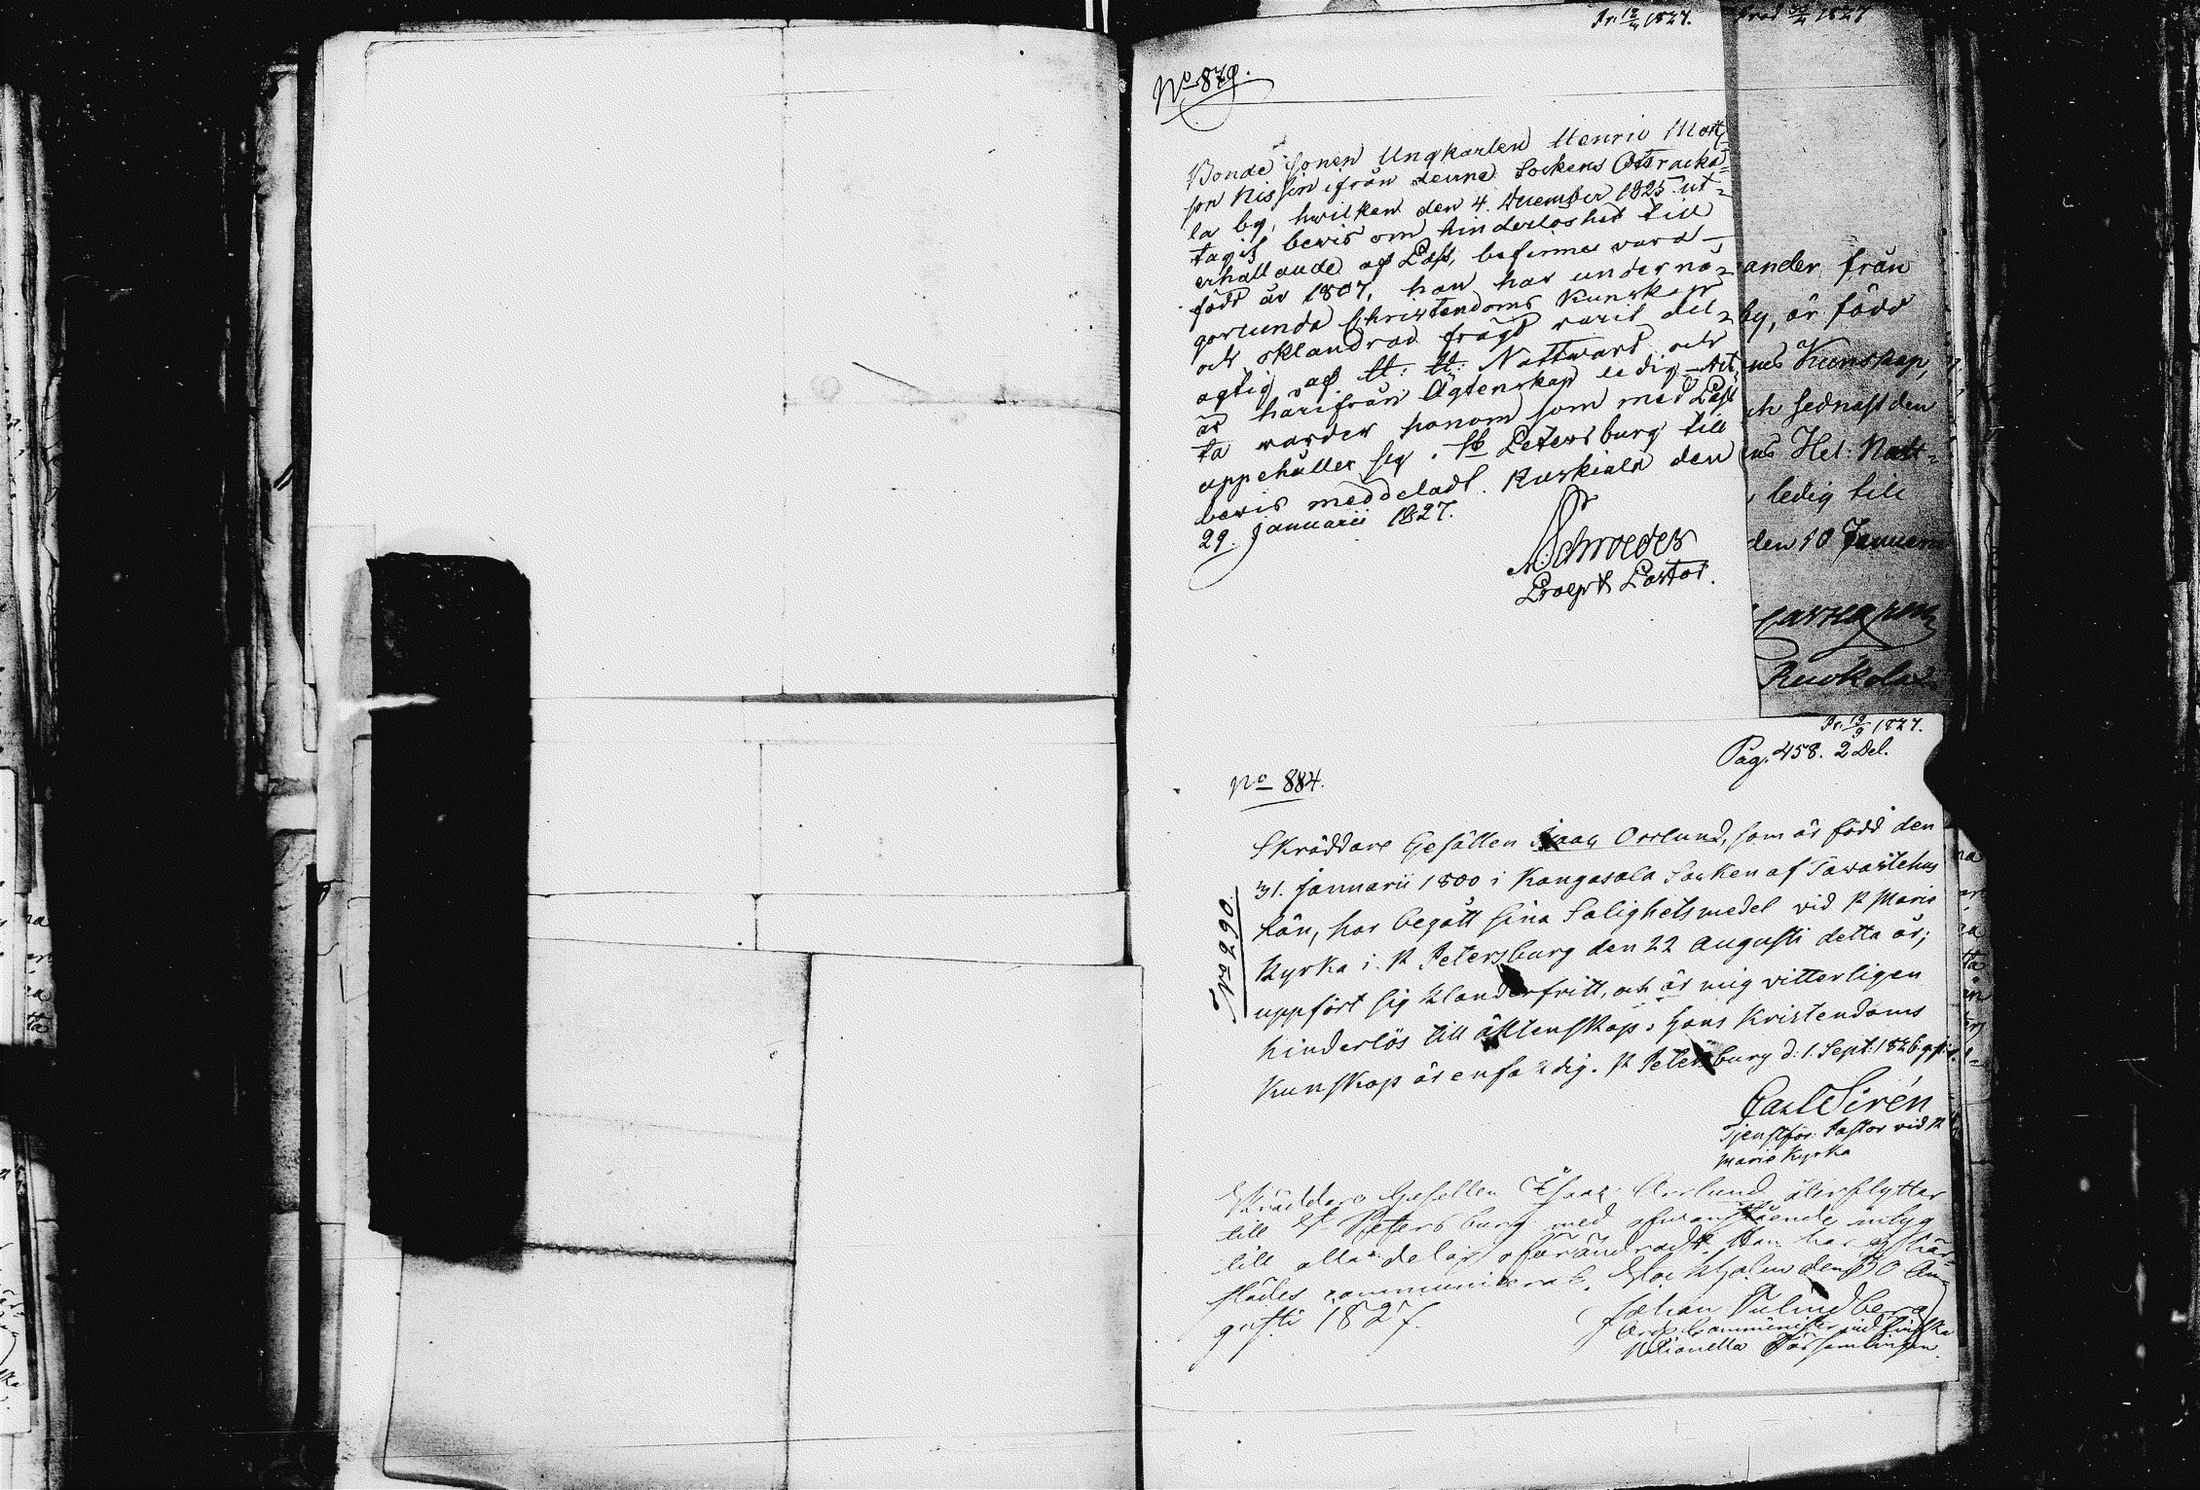 Pr. 12/4 1827.
No 879.
Bonde Sonen Ungkarlen Henric Matts
son Nissin ifrån denne Sockens Otsracka-
la by, hwilken den 4. December 1825 ut-
tagit bewis om hinderlöshet till
erhållande af Pass, befinnes vara
född år 1807, han har under nö-
gorlunda Christendoms Kunskap
och oklandrad frägd varit del-
agtig af H: H: Nattward och
är härifrån Ägtenskap ledig. Det-
ta warder honom som med Pass
uppehåller sig i St Petersburg till
bewis meddeladt. Ruskiala den
29. Januarii 1827.
A. Schroeder
Proept & Pastor.
1827
ander från
by, är född
ms Kunskap,
ch sednast den
Hel: Natt-
ledig till
den 10 Januarii
Ruokolax
Pr. 19/9 1827.
Pag. 458. 2 Del.
No 884.
No 290.
Skräddare Gesällen Isaac Orrlund, som är född den
31. Januarii 1800 i Kangasala Socken af Tawastehus
Län, har begått sina Salighetsmedel vid St Marie
Kyrka i St Petersburg den 22 Augusti detta år;
uppfört sig klanderfritt, och är mig vitterligen
hinderlös till äktenskap. Hans Kristendoms
Kunskap är enfaldig. St Petersburg d: 1. Sept: 1826
Carl Sirén
Tjenstför: Pastor vid St
Marie Kyrka
Skräddare Gesellen Isaac Orrlund återflyttar
till St Petersburg med ofwanstående intyg
till alla delar oförändradt. Han har ej här-
städes communicerat. Stockholm den 30 Au-
gusti 1827.
Johan
Ord. Comminister vid Finska
Nationella Församlingen.